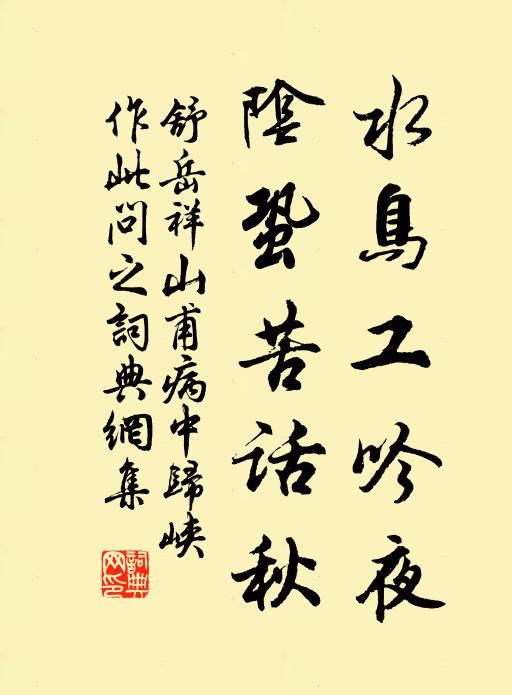 水鳥工吟夜
陰蛩苦話秋
舒岳祥山甫病中歸峽
作此問之詞典網集
詞典
网印